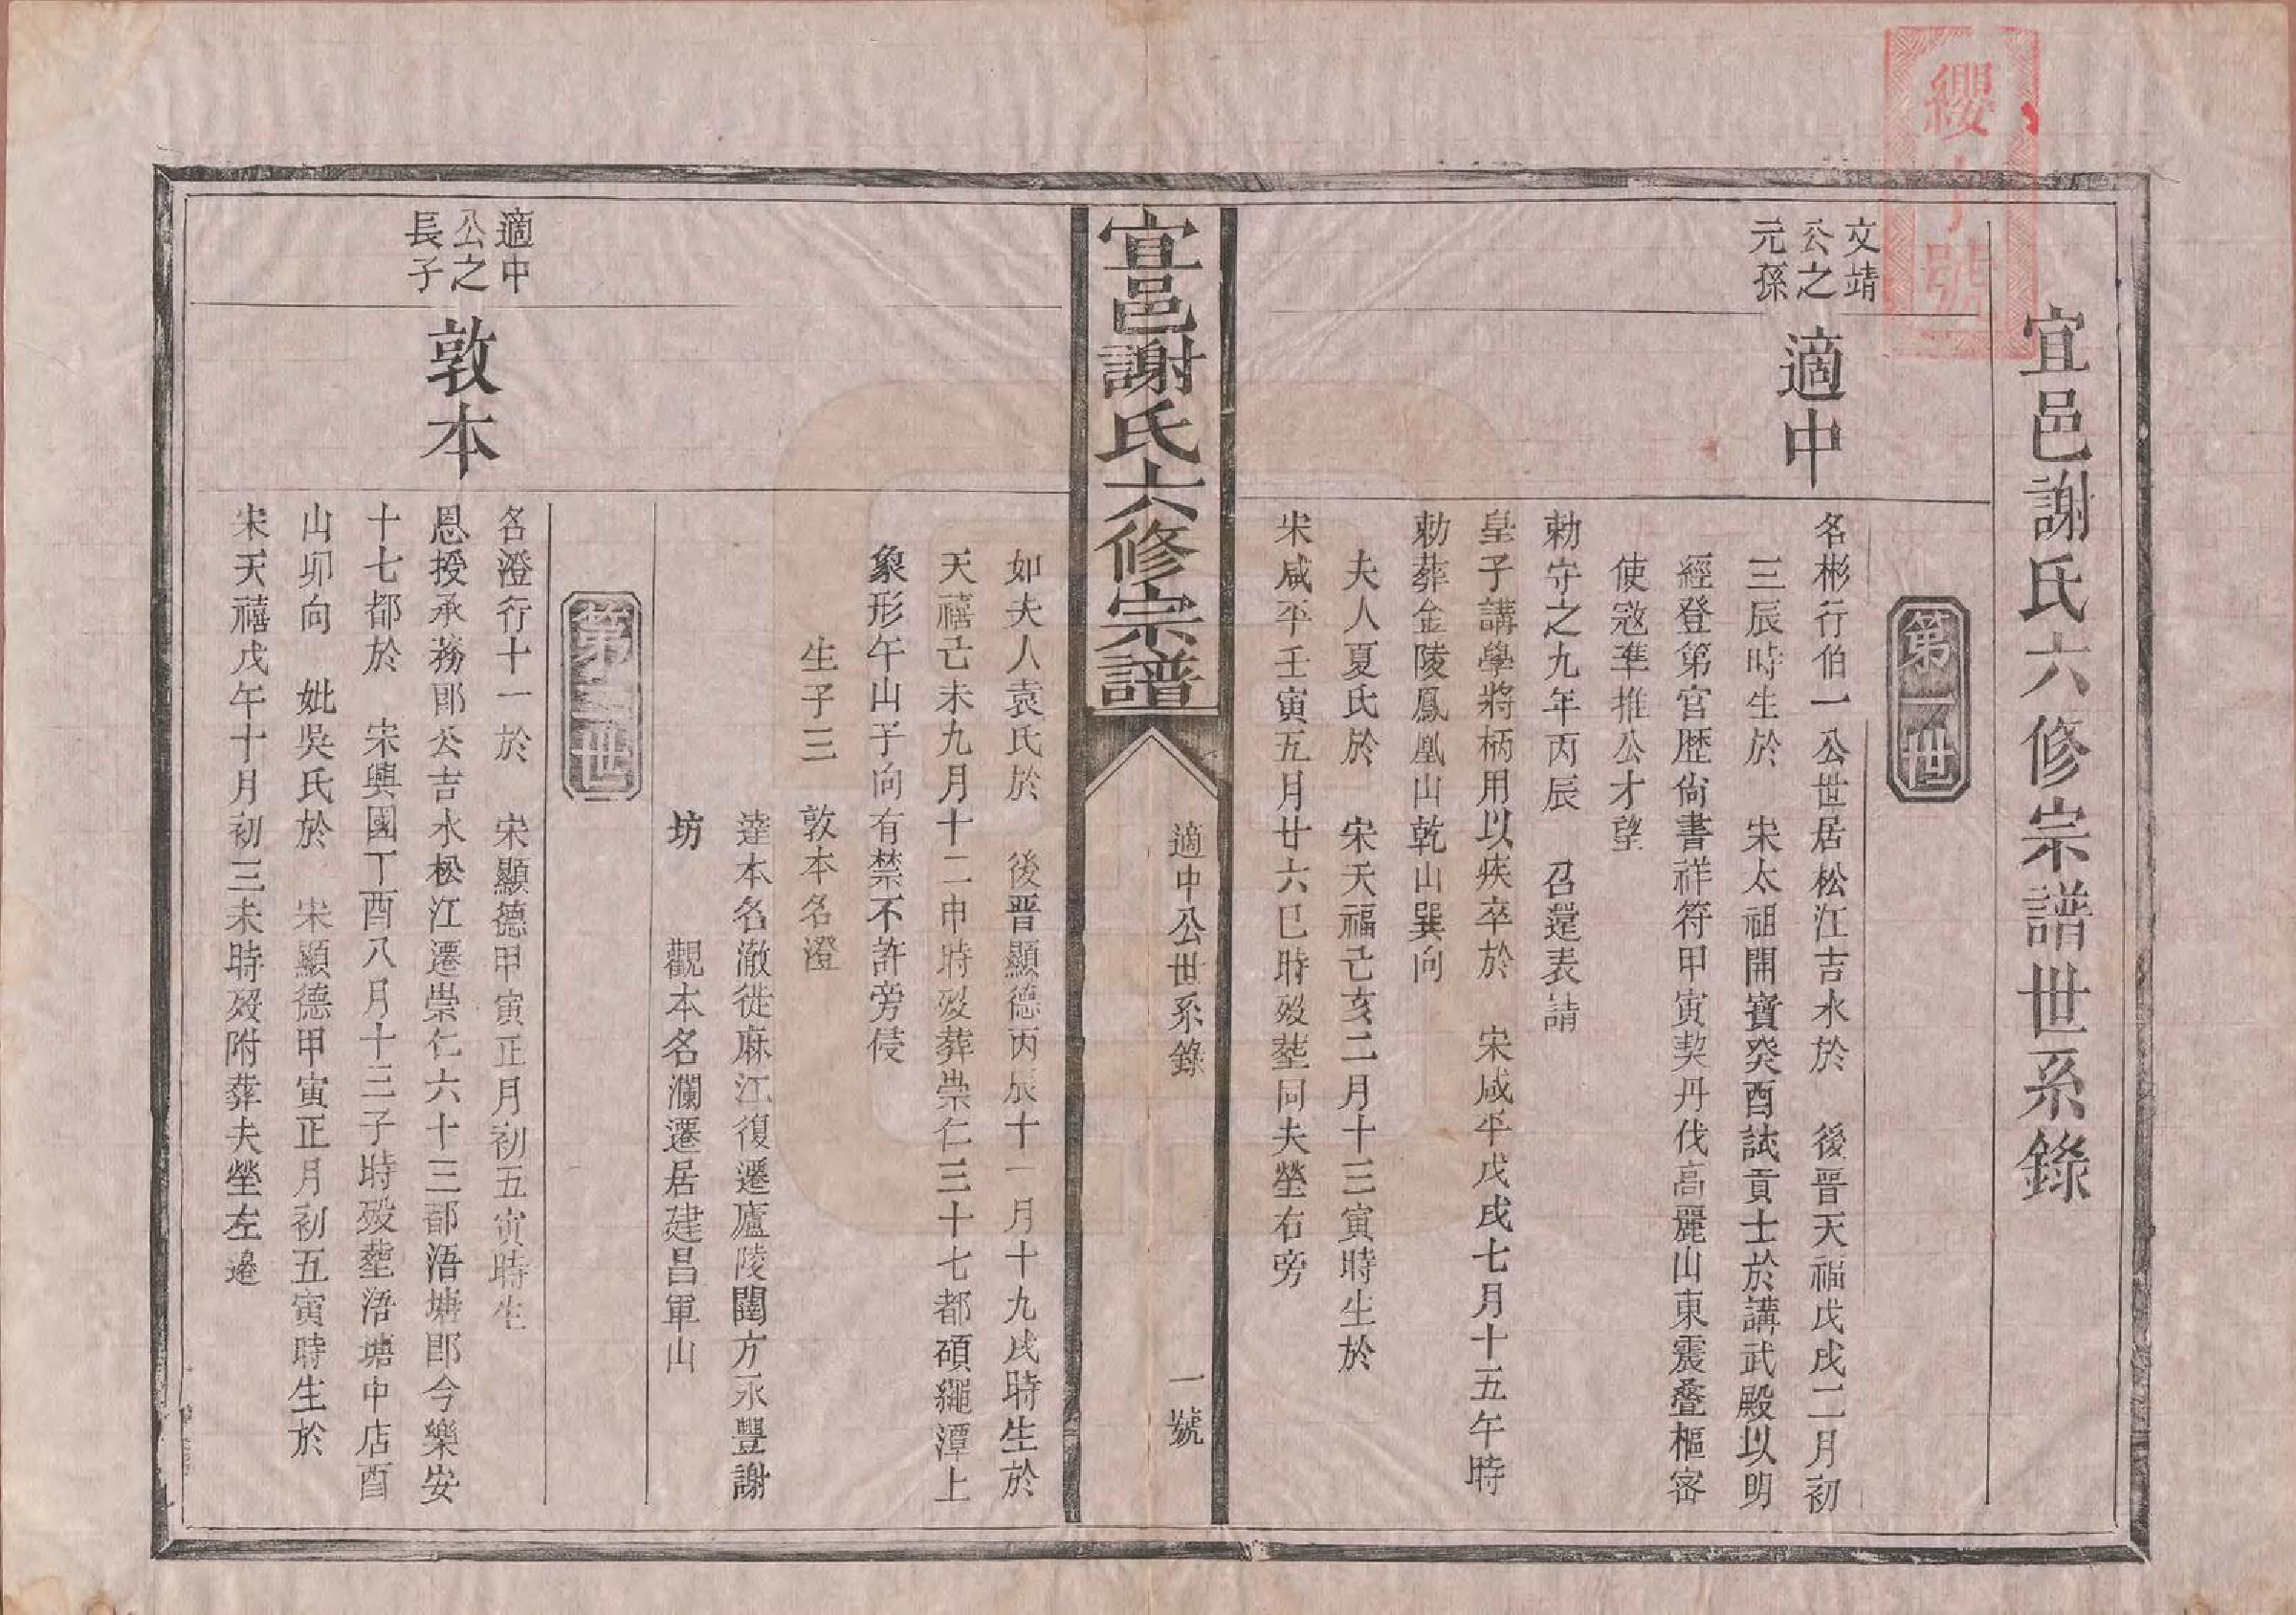 宜邑謝氏六修宗譜世系錄
纓字號
第一世
文靖
公之
元孫
適中
名彬行伯一公世居松江吉水於　後晉天福戊戌二月初
三辰時生於　宋太祖開寶癸酉試貢士於講武殿以明
經登第官歷尙書祥符甲寅契丹伐高麗山東震疊樞密
使寇準推公才望
勅守之九年丙辰　召還表請
皇子講學將柄用以疾卒於　宋咸平戊戌七月十五午時
勅葬金陵鳳凰山乾山巽向
夫人夏氏於　宋天福己亥二月十三寅時生於
宋咸平壬寅五月廿六巳時歿塟同夫塋右旁
宜邑謝氏六修宗譜
適中公世系錄
一號
如夫人袁氏於　後晉顯德丙辰十一月十九戌時生於
天禧己未九月十二申時歿葬崇仁三十七都碩繩潭上
象形午山子向有禁不許旁侵
生子三　敦本名澄
達本名澈徙麻江復遷廬陵閣方永豐謝
坊　觀本名瀾遷居建昌軍山
第二世
適中
公之
長子
敦本
名澄行十一於　宋顯德甲寅正月初五寅時生
恩授承務郎公吉水松江遷崇仁六十三都浯塘卽今樂安
十七都於　宋興國丁酉八月十三子時歿塟浯塘中店酉
山卯向　妣吳氏於　宋顯德甲寅正月初五寅時生於
宋天禧戊午十月初三未時歿附葬夫塋左邊